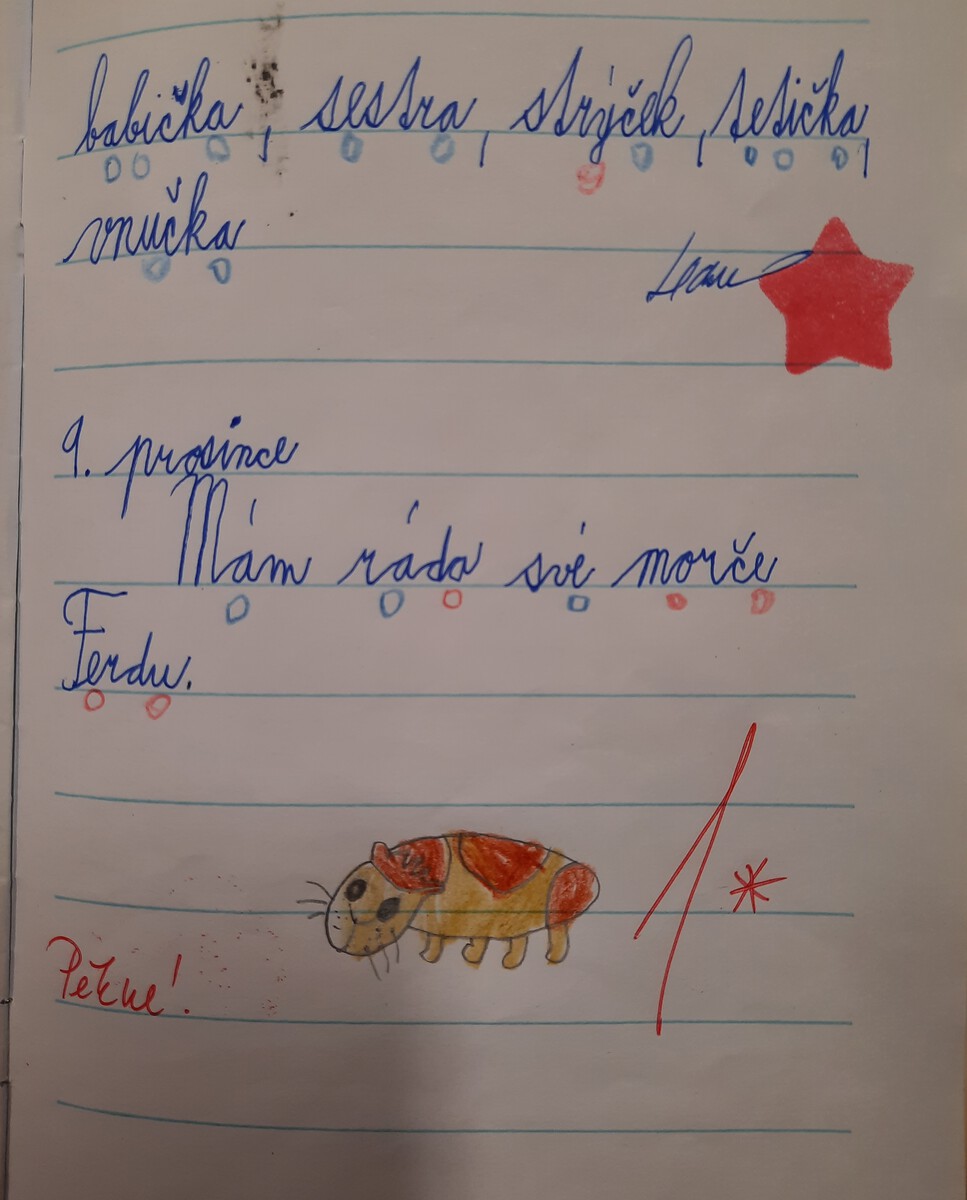 babička, sestra, strýček, tetička,
vnučka
9. prosince
Mám ráda své morče
Ferdu.
1*
Pěkné!